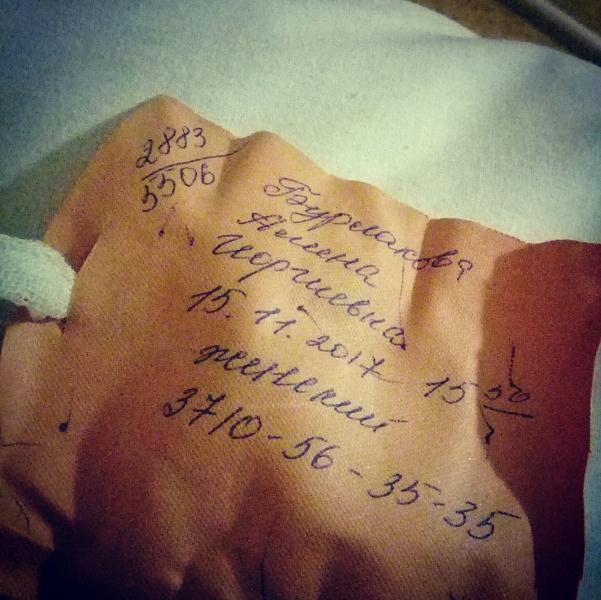 2883
5506
Бурлакова
Алина
Игоревна
15.11.2017 15 50
женский
3710-56-35-35